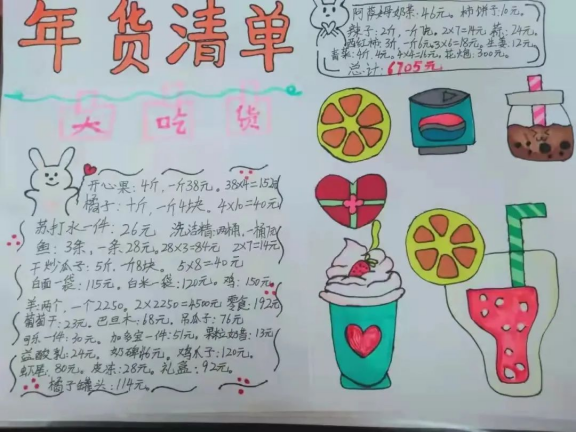 年货清单
大吃货
阿萨姆奶茶:46元。柿饼子10元。
辣子:2斤,一斤7元。2×7=14元
24元。
西红柿:3斤,一斤6元。3×6=18元。生菜:12元。
青菜:4斤,4元。4×4=16元。花炮:300元。
总计:6705元
开心果:4斤,一斤38元。38×4=152
橘子:十斤,一斤4块。4×10=40元
苏打水一件:26元 洗洁精:两桶,一桶7元
鱼:3条,一条28元。28×3=84元 2×7=14元
干炒瓜子:5斤,一斤8块。5×8=40元
白面一袋:115元。白米一袋:120元。鸡:150元。
羊:两个,一个2250。2×2250=4500元 零食:192元
葡萄干:23元。巴旦木:68元。吊瓜子:76元
可乐一件:30元。加多宝一件:51元。果粒奶昔:13元
益酸乳:24元。奶砖46元。鸡爪子:120元。
虾尾:80元。皮冻:28元。礼盒:92元。
橘子罐头:114元。